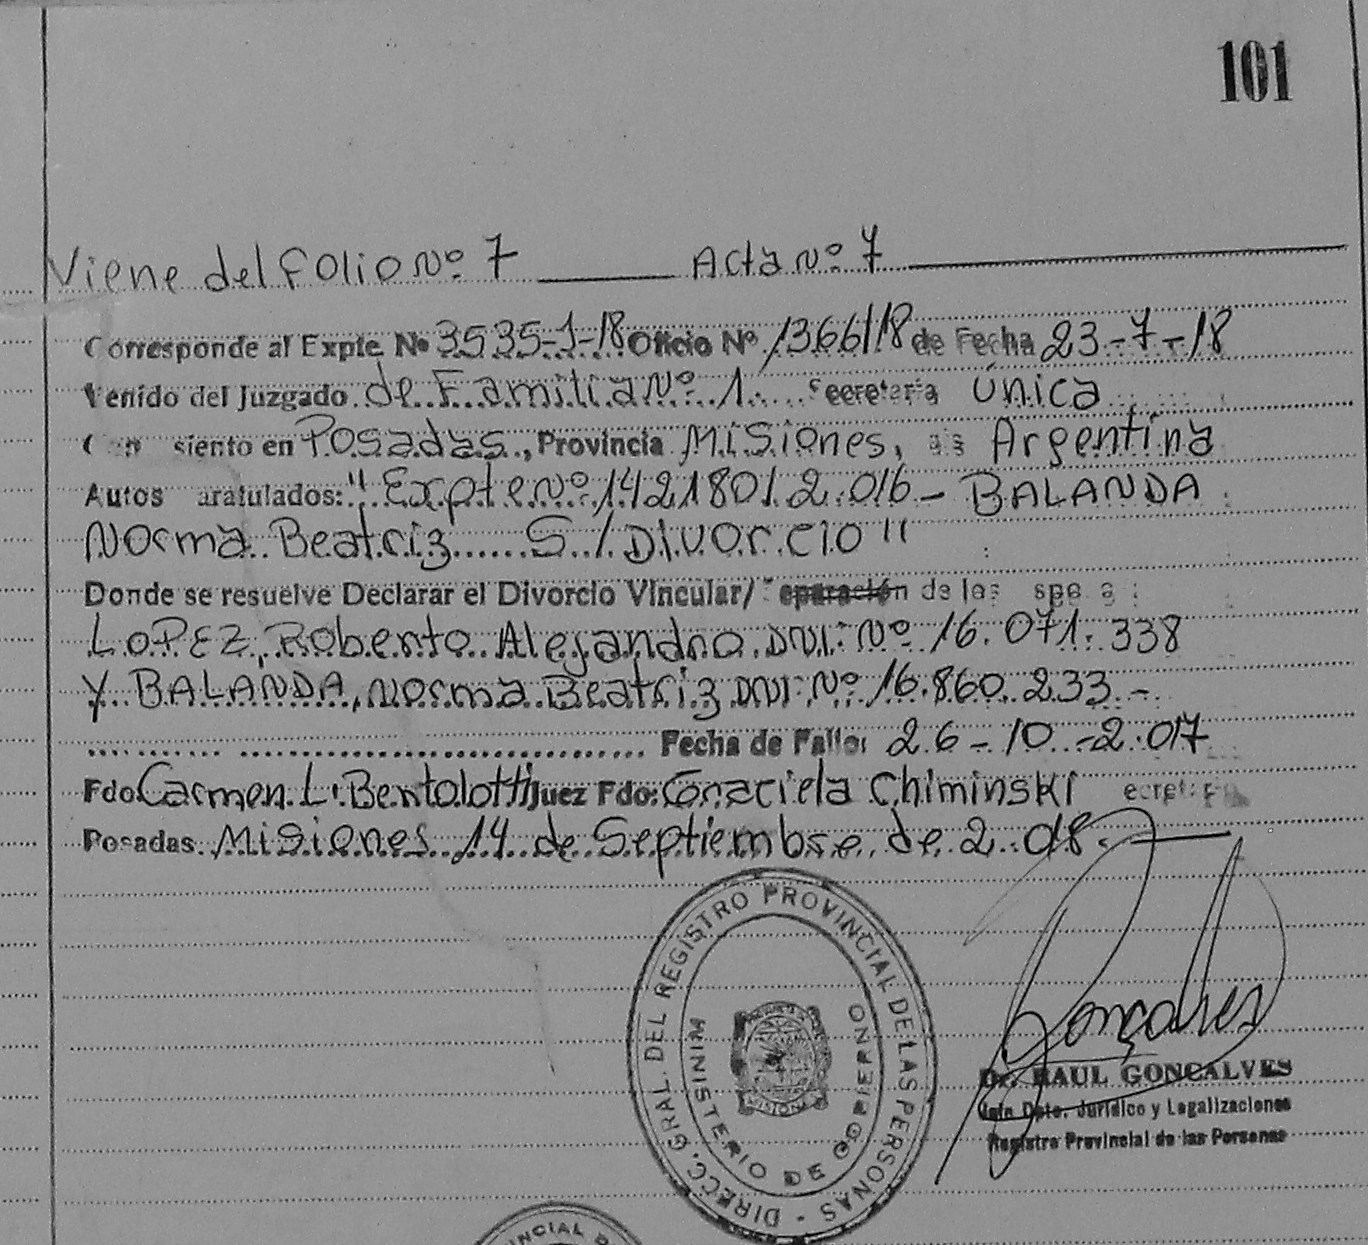 101
Viene del folio Nº 7 Acta Nº 7
Corresponde al Expte. Nº 3535-J-18 Oficio Nº 1366/18 de Fecha 23-7-18
Venido del Juzgado de Familia Nº 1. Secretaría Única
siento en Posadas, Provincia Misiones, Argentina
Autos aratulados: "Expte Nº 142180/2.016- BALANDA
Norma Beatriz S/Divorcio"
Donde se resuelve Declarar el Divorcio Vincular/ eparación de los
LOPEZ, Roberto Alejandro DNI: Nº 16.071.338
Y BALANDA, Norma Beatriz DNI: Nº 16.860.233.-
Fecha de Fallo: 26-10-2.017
Fdo Carmen L. Bertolotti Juez Fdo: Graciela Chiminski
Posadas. Misiones 14 de Septiembre de 2.018.
DIRECC. GRAL. DEL REGISTRO PROVINCIAL DE LAS PERSONAS -
MINISTERIO DE GOBIERNO
MISIONES
Gonçalves
Dr. RAUL GONCALVES
Jefe Dpto. Jurídico y Legalizaciones
Registro Provincial de las Personas